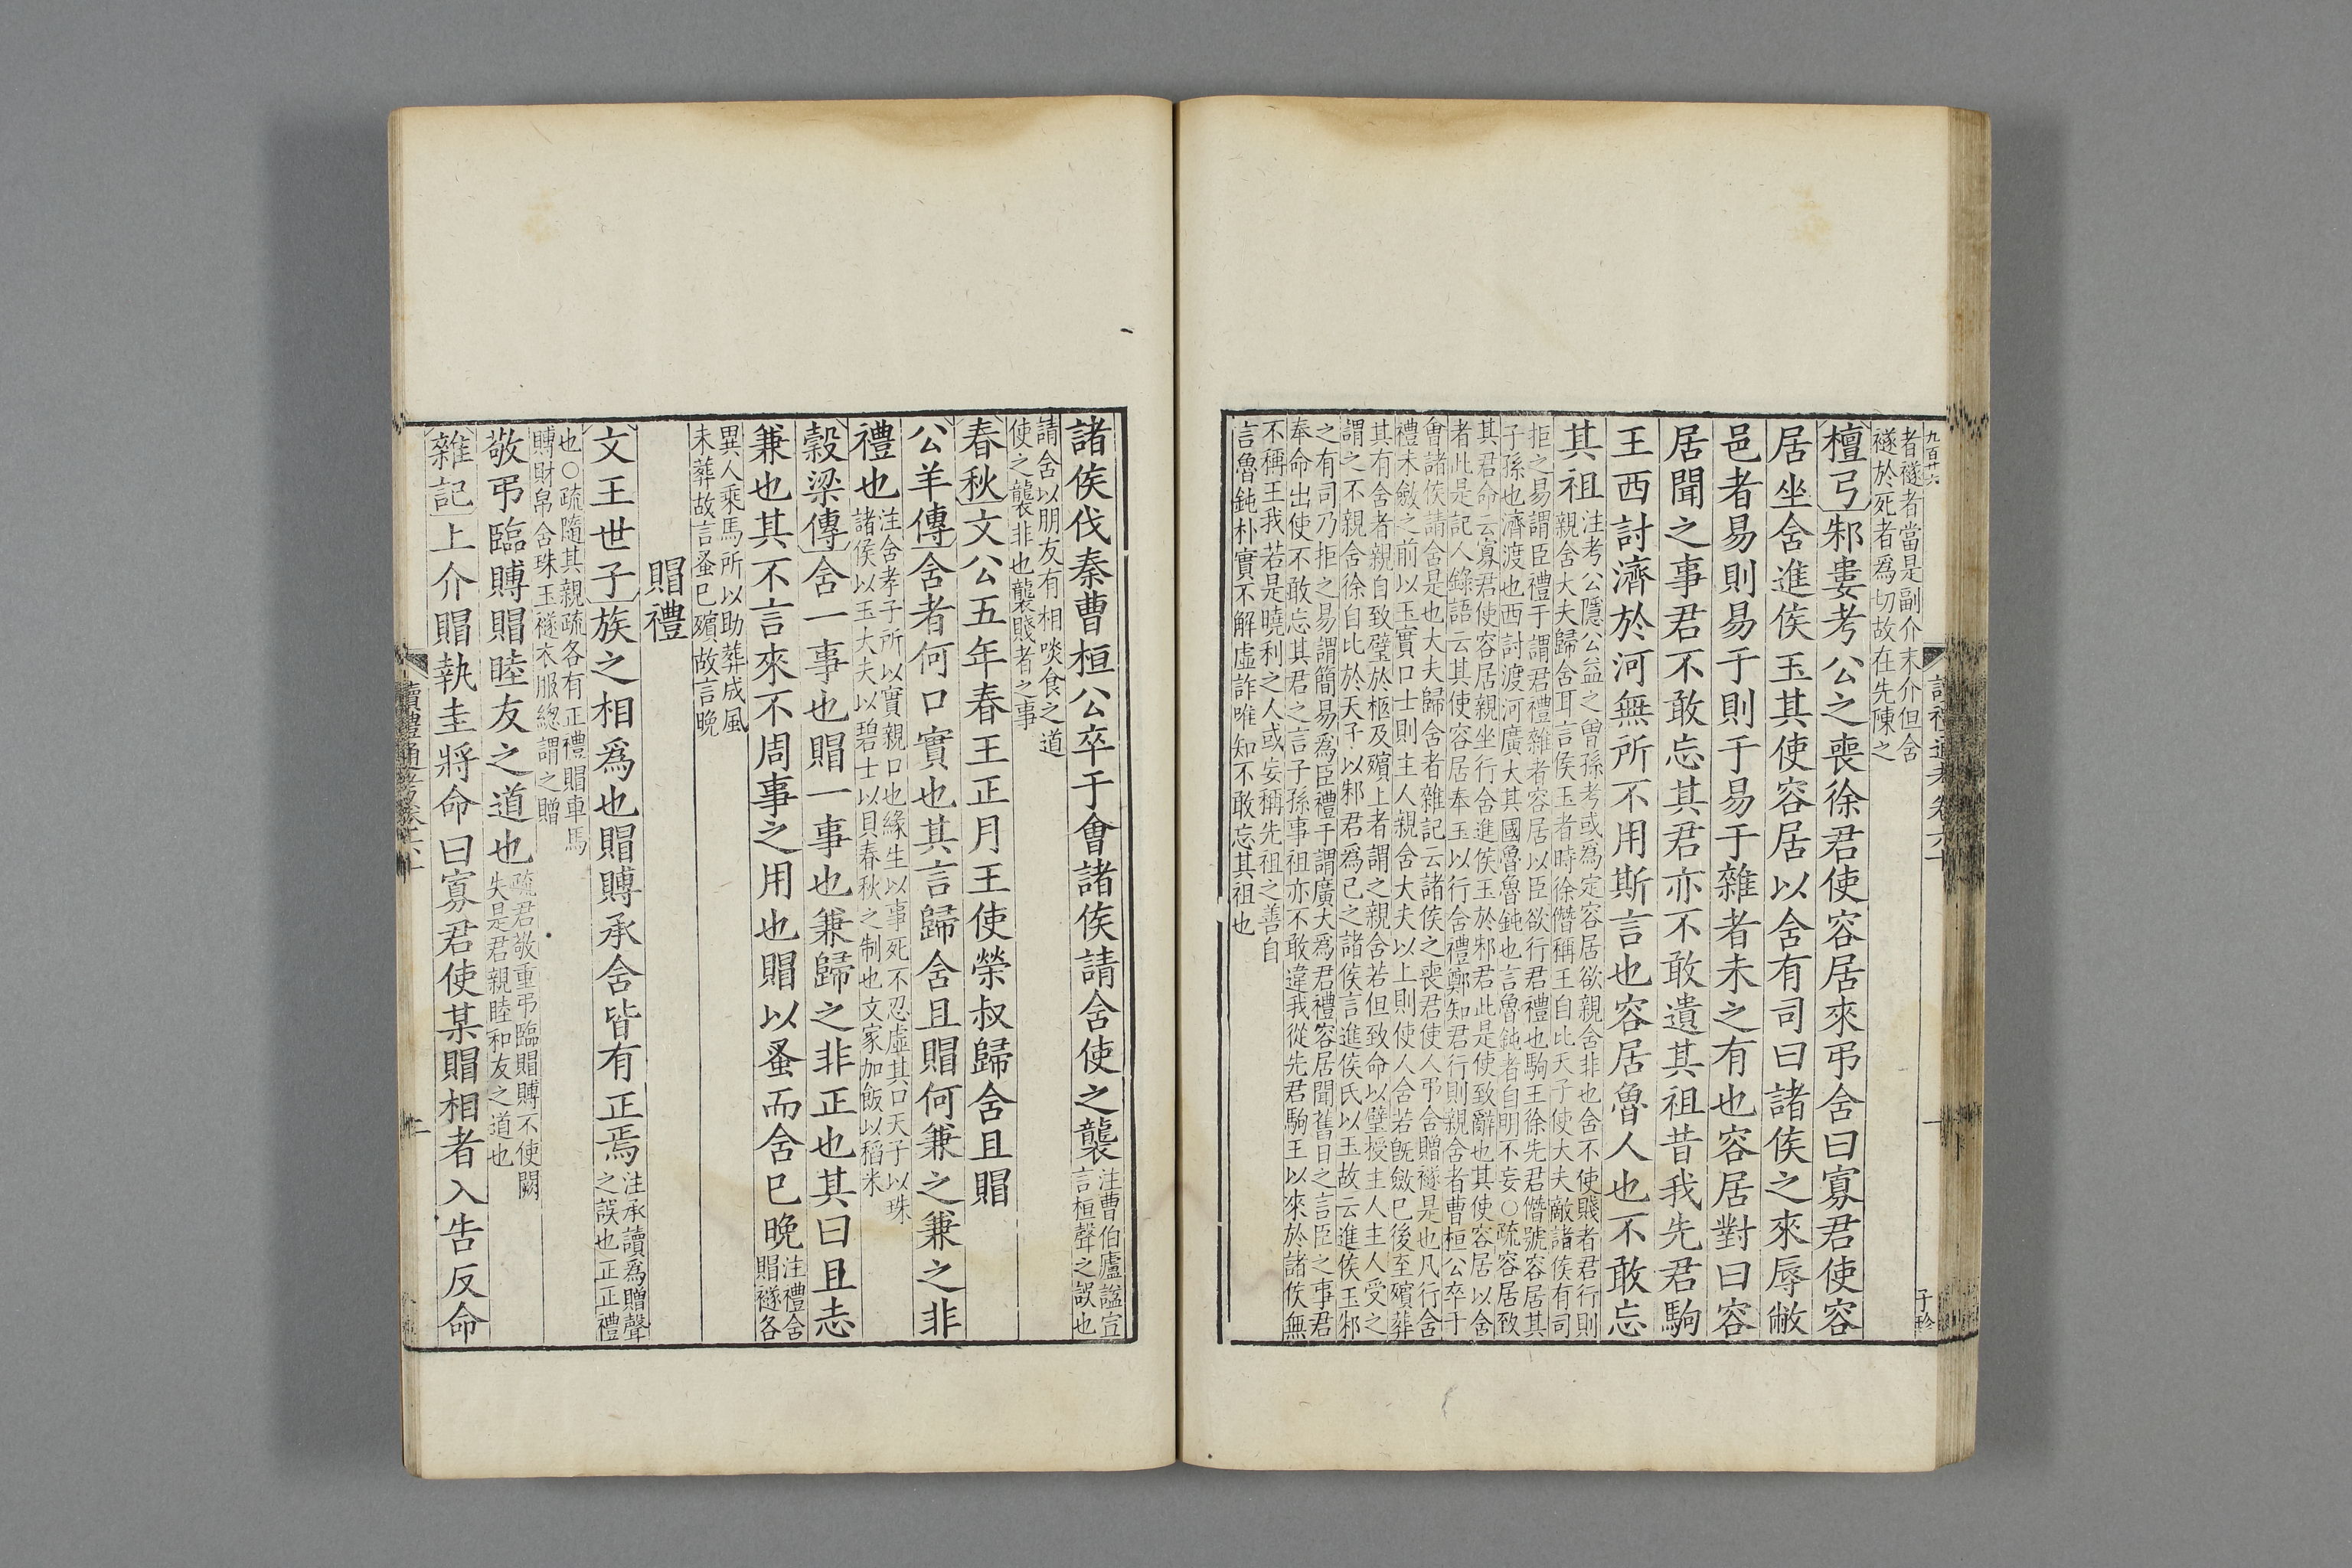 九百廿六
者襚者當是副介末介但含
襚於死者爲切故在先陳之
檀弓邾婁考公之喪徐君使容居來弔含曰寡君使容
居坐含進侯玉其使容居以含有司曰諸侯之來辱敝
邑者易則易于則于易于雜者未之有也容居對曰容
居聞之事君不敢忘其君亦不敢遺其祖昔我先君駒
王西討濟於河無所不用斯言也容居魯人也不敢忘
其祖
注考公隱公益之曾孫考或為定容居欲親含非也含不使賤者君行則
親含大夫歸含耳言侯玉者時徐僭稱王自比天子使大夫敵諸侯有司
拒之易謂臣禮于謂君禮雜者容居以臣欲行君禮也駒王徐先君僭號容居其
子孫也濟渡也西討渡河廣大其國魯魯鈍也言魯鈍者自明不妄○疏容居致
其君命云寡君使容居親坐行含進侯玉於邾君此是使致辭也其使容居以含
者此是記人錄語云其使容居奉玉以行含禮鄭知君行則親含者曹桓公卒于
會諸侯請含是也大夫歸含者雜記云諸侯之喪君使人弔含贈襚是也凡行含
禮未斂之前以玉實口士則主人親含大夫以上則使人含若旣斂已後至殯葬
其有含者親自致璧於柩及殯上者謂之親含若但致命以璧授主人主人受之
謂之不親含徐自比於天子以邾君爲己之諸侯言進侯氏以玉故云進侯玉邾
之有司乃拒之易謂簡易爲臣禮于謂廣大爲君禮容居聞舊日之言臣之事君
奉命出使不敢忘其君之言子孫事祖亦不敢違我從先君駒王以來於諸侯無
不稱王我若是曉利之人或妄稱先祖之善自
言魯鈍朴實不解虛詐唯知不敢忘其祖也
諸侯伐秦曹桓公卒于會諸侯請含使之襲
注曹伯廬諡宣
言桓聲之誤也
請含以朋友有相啖食之道
使之襲非也襲賤者之事
春秋文公五年春王正月王使榮叔歸含且賵
公羊傳含者何口實也其言歸含且賵何兼之兼之非
禮也
注含孝子所以實親口也緣生以事死不忍虛其口天子以珠
諸侯以玉大夫以碧士以貝春秋之制也文家加飯以稻米
穀梁傳含一事也賵一事也兼歸之非正也其曰且志
兼也其不言來不周事之用也賵以蚤而含已晚
注禮含
賵襚各
異人乘馬所以助葬成風
未葬故言蚤已殯故言晚
賵禮
文王世子族之相爲也賵賻承含皆有正焉
注承讀爲贈聲
之誤也正正禮
也○疏隨其親疏各有正禮賵車馬
賻財帛含珠玉襚衣服總謂之贈
敬弔臨賻賵睦友之道也
疏君敬重弔臨賵賻不使闕
失是君親睦和友之道也
雜記上介賵執圭將命曰寡君使某賵相者入告反命
讀禮通考卷六十
二